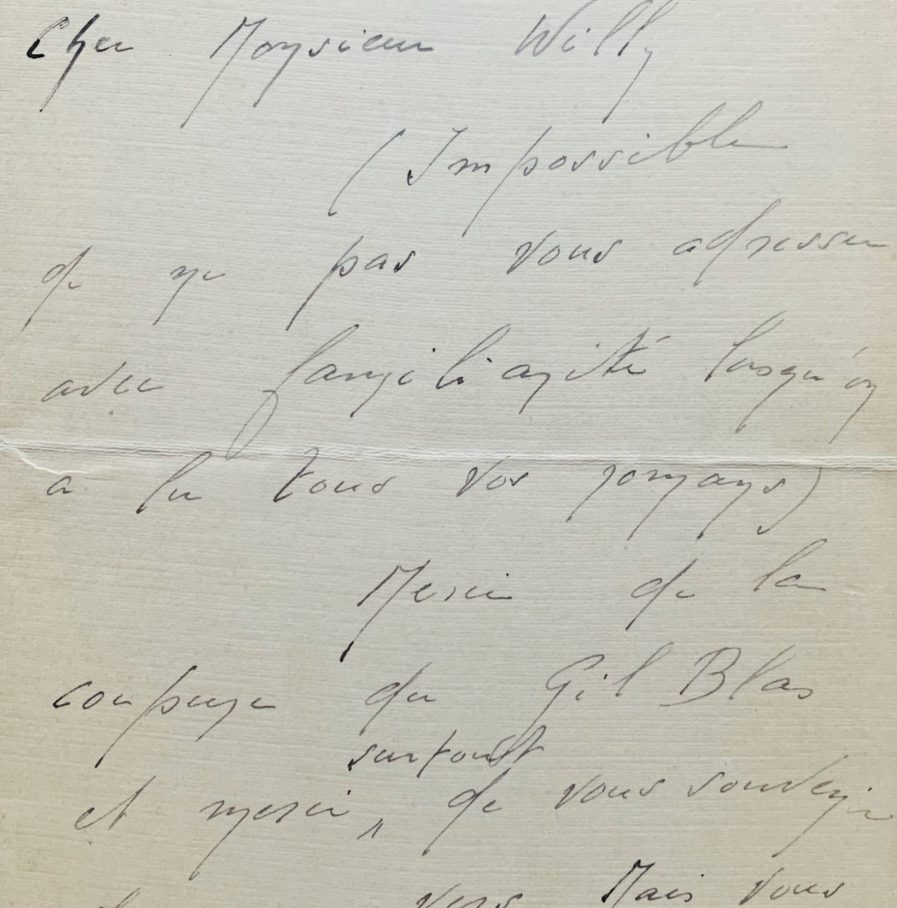 Cher Monsieur Willy
(Impossible
de ne pas vous adresser
avec familiarité lorsqu'on
a lu tous vos romans)
Merci de la
coupure du Gil Blas
surtout
et merci, de vous souvenir
vers Mais vous